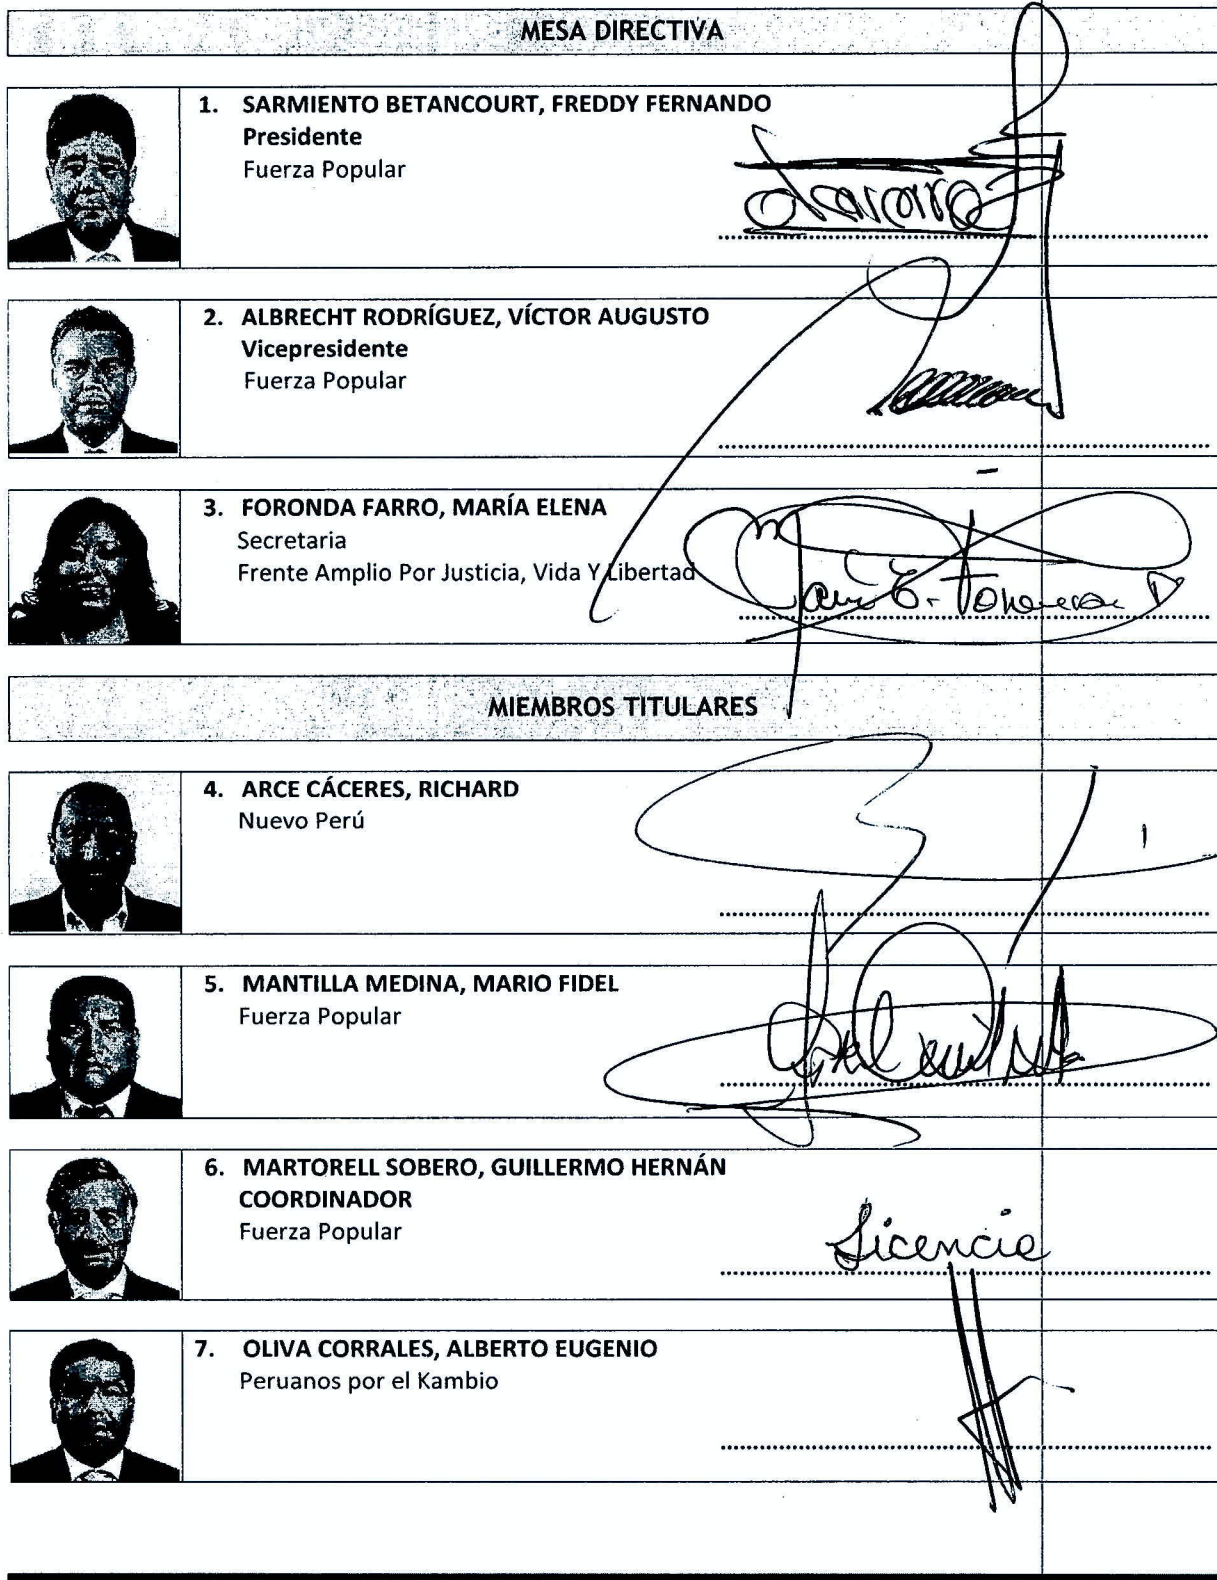 MESA DIRECTIVA
1. SARMIENTO BETANCOURT, FREDDY FERNANDO
Presidente
Fuerza Popular
2. ALBRECHT RODRÍGUEZ, VÍCTOR AUGUSTO
Vicepresidente
Fuerza Popular
3. FORONDA FARRO, MARÍA ELENA
Secretaria
Frente Amplio Por Justicia, Vida Y Libertad
MIEMBROS TITULARES
4. ARCE CÁCERES, RICHARD
Nuevo Perú
5. MANTILLA MEDINA, MARIO FIDEL
Fuerza Popular
6. MARTORELL SOBERO, GUILLERMO HERNÁN
COORDINADOR
Fuerza Popular
Licencia
7. OLIVA CORRALES, ALBERTO EUGENIO
Peruanos por el Kambio